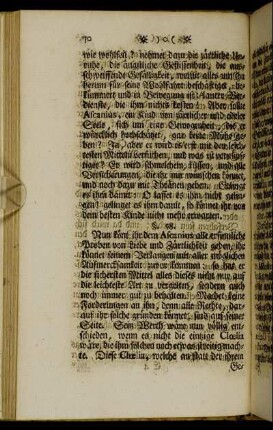 10
wie wohlfeil? nehmet dazu die zärtliche Un-
ruhe, die ängstliche Geflissenheit, die aus-
schweiffende Gefälligkeit, welche alles um sich
herum für seine Wohlfahrt beschäftiget, be-
kümmert und in Bewegung ist; lauter Ver-
dienste, die ihm nichts kosten. Aber sollte
Ascanius, ein Kind von zärtlicher und edler
Seele, sich um eine Gewogenheit, die er
würcklich hochschätzet, gar keine Mühe ge-
ben? Ja, aber er wird es erst mit den leich-
testen Mitteln versuchen, und was ist vernünf-
tiger? Er wird schmeicheln, küssen, und alle
Versicherungen, die ihr nur wünschen könnet,
und noch dazu mit Thränen geben. Gelinget
es ihm damit? O lasset es ihm nicht gelin-
gen! gelinget es ihm damit, so könnet ihr von
dem besten Kinde nicht mehr erwarten.
Nun könt ihr dem Ascanius alle ersinnliche
Proben von Liebe und Zärtlichkeit geben, ihr
könnet seinem Verlangen mit aller möglichen
Aufmercksamkeit zuvor kommen; so hat er
die sichersten Mittel alles dieses nicht nur auf
die leichteste Art zu vergelten, sondern auch
noch immer gut zu behalten. Machet keine
Forderungen an ihn, denn alle Rechte, dar-
auf ihr solche gründen könnet, sind auf seiner
Seite. Sein Werth wäre nun völlig ent-
schieden, wenn es nicht die einzige Cloelia
wäre, die ihm solchen noch etwas streitig mach-
te. Diese Cloelia, welche an statt der ihrem
Ge-